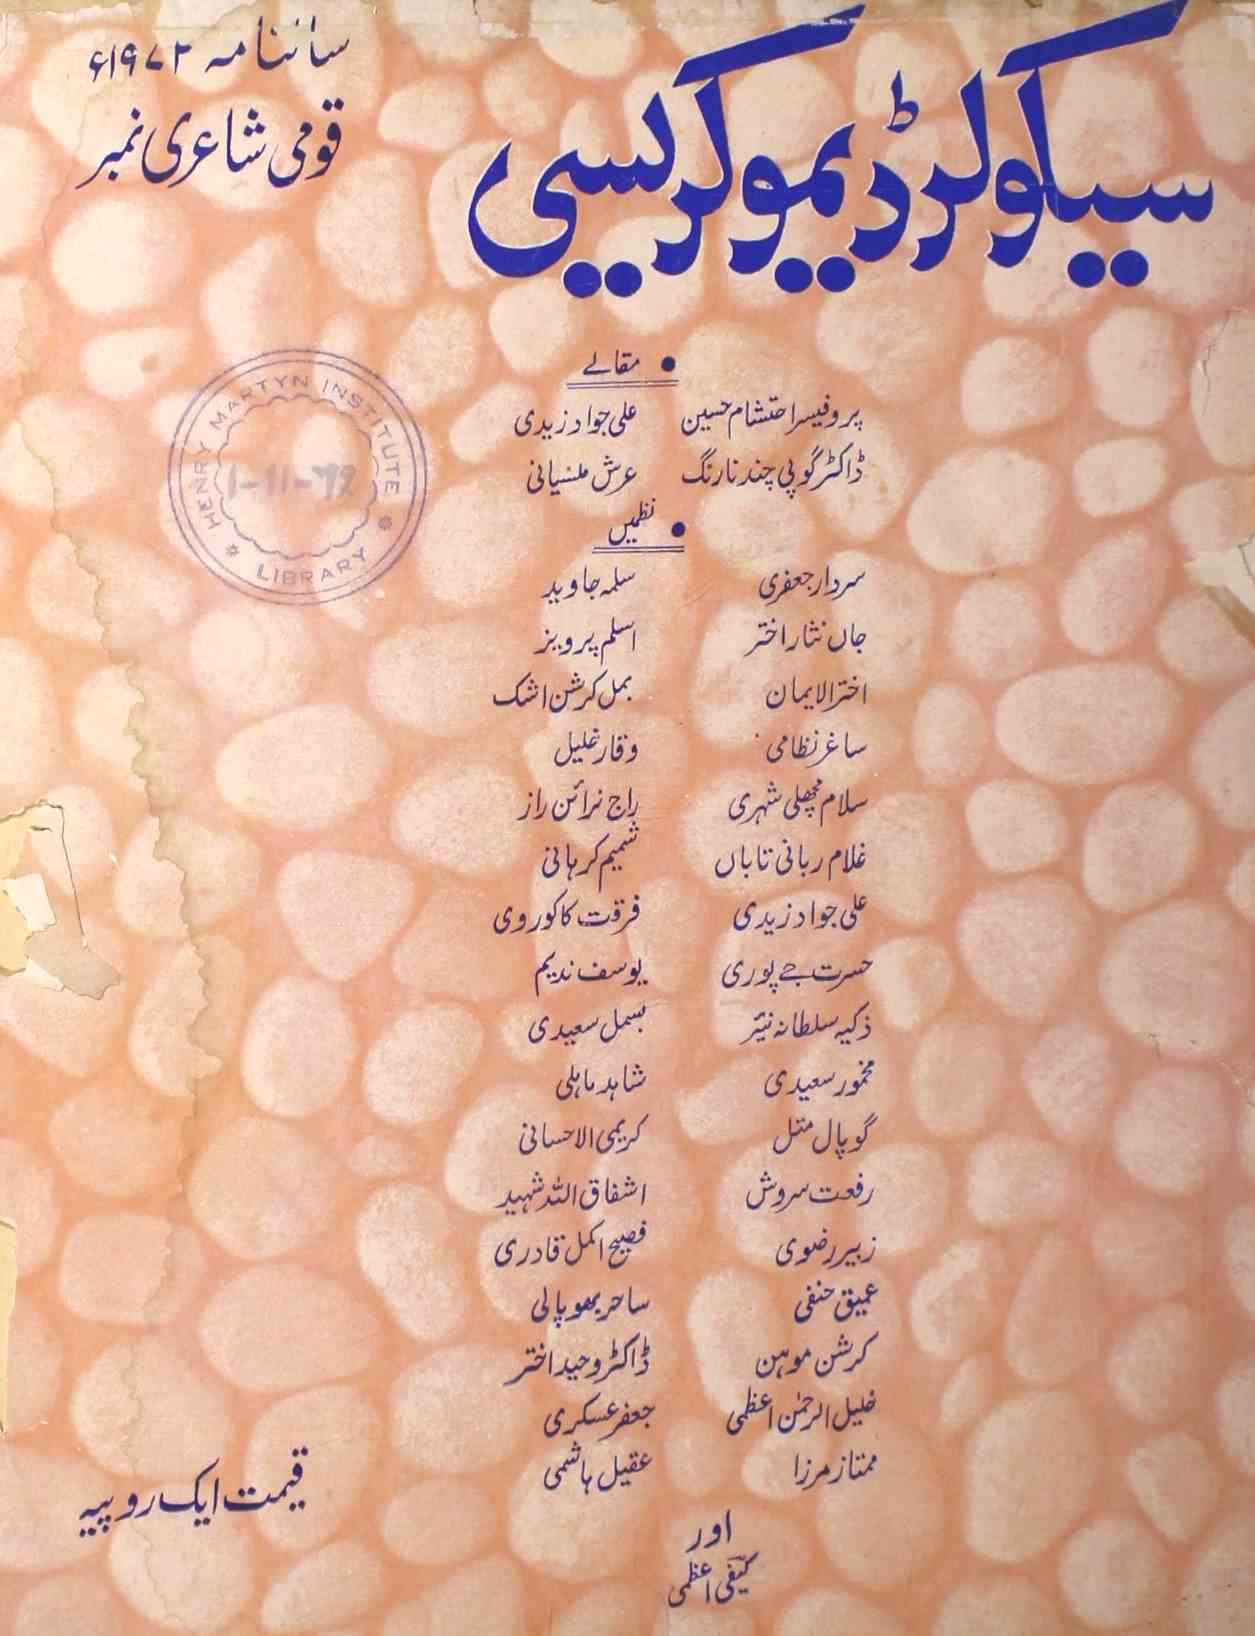 سالنامہ ۱۹۷۲ء
قومی شاعری نمبر
سیکولر ڈیموکریسی
HENRY MARTYN INSTITUTE * LIBRARY *
• مقالے
پروفیسر احتشام حسین علی جواد زیدی
ڈاکٹر گوپی چند نارنگ عرش ملسیانی
• نظمیں
سردار جعفری سلمہ جاوید
جاں نثار اختر اسلم پرویز
اخترالایمان بمل کرشن اشک
ساغر نظامی وقار خلیل
سلام مچھلی شہری راج نرائن راز
غلام ربانی تاباں شمیم کرہانی
علی جواد زیدی فرقت کاکوروی
حسرت جے پوری یوسف ندیم
ذکیہ سلطانہ نیّر بسمل سعیدی
مخمور سعیدی شاہد ماہلی
گوپال متل کریمی الاحسانی
رفعت سروش اشفاق اللہ شہید
زبیر رضوی فصیح اکمل قادری
عمیق حنفی ساحر بھوپالی
کرشن موہن ڈاکٹر وحید اختر
خلیل الرحمٰن اعظمی جعفر عسکری
ممتاز مرزا عقیل ہاشمی
اور
کیفی اعظمی
قیمت ایک روپیہ